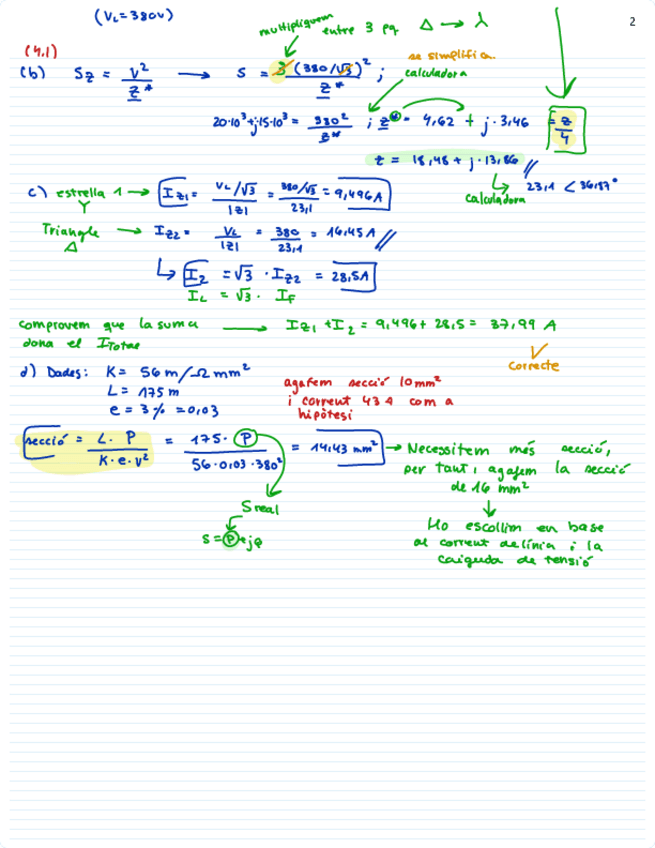 (VL=380V)
2
multipliquem entre 3 pq Δ → λ
(4.1)
(b) Sz = V² / Z* → S = 3(380/√3)² / Z* ;
se simplifica.
calculadora
20·10³+j·15·10³ = 380² / Z* ; Z* = 4,62 + j·3,46 = Z/4
Z = 18,48 + j·13,86 //
Calculadora 23,1 < 36,87°
c) estrella 1 → IZ1 = VL/√3 / |Z| = 380/√3 / 23,1 = 9,496A
Y
Triangle → IZ2 = VL / |Z| = 380 / 23,1 = 16,45A //
Δ
↳ I2 = √3 · IZ2 = 28,5A
IL = √3 · IF
comprovem que la suma → IZ1 + I2 = 9,496 + 28,5 = 37,99 A
dona el ITotal
Correcte
d) Dades: K = 56 m/Ω mm²
L = 175 m
e = 3% = 0,03
agafem secció 10mm²
i corrent 43 A com a
hipòtesi
secció = L· P / K·e·V² = 175· P / 56·0,03·380² = 14,43 mm² → Necessitem més secció,
per tant, agafem la secció
de 16 mm²
S real
S = P + jQ
Ho escollim en base
al corrent de línia i la
caiguda de tensió